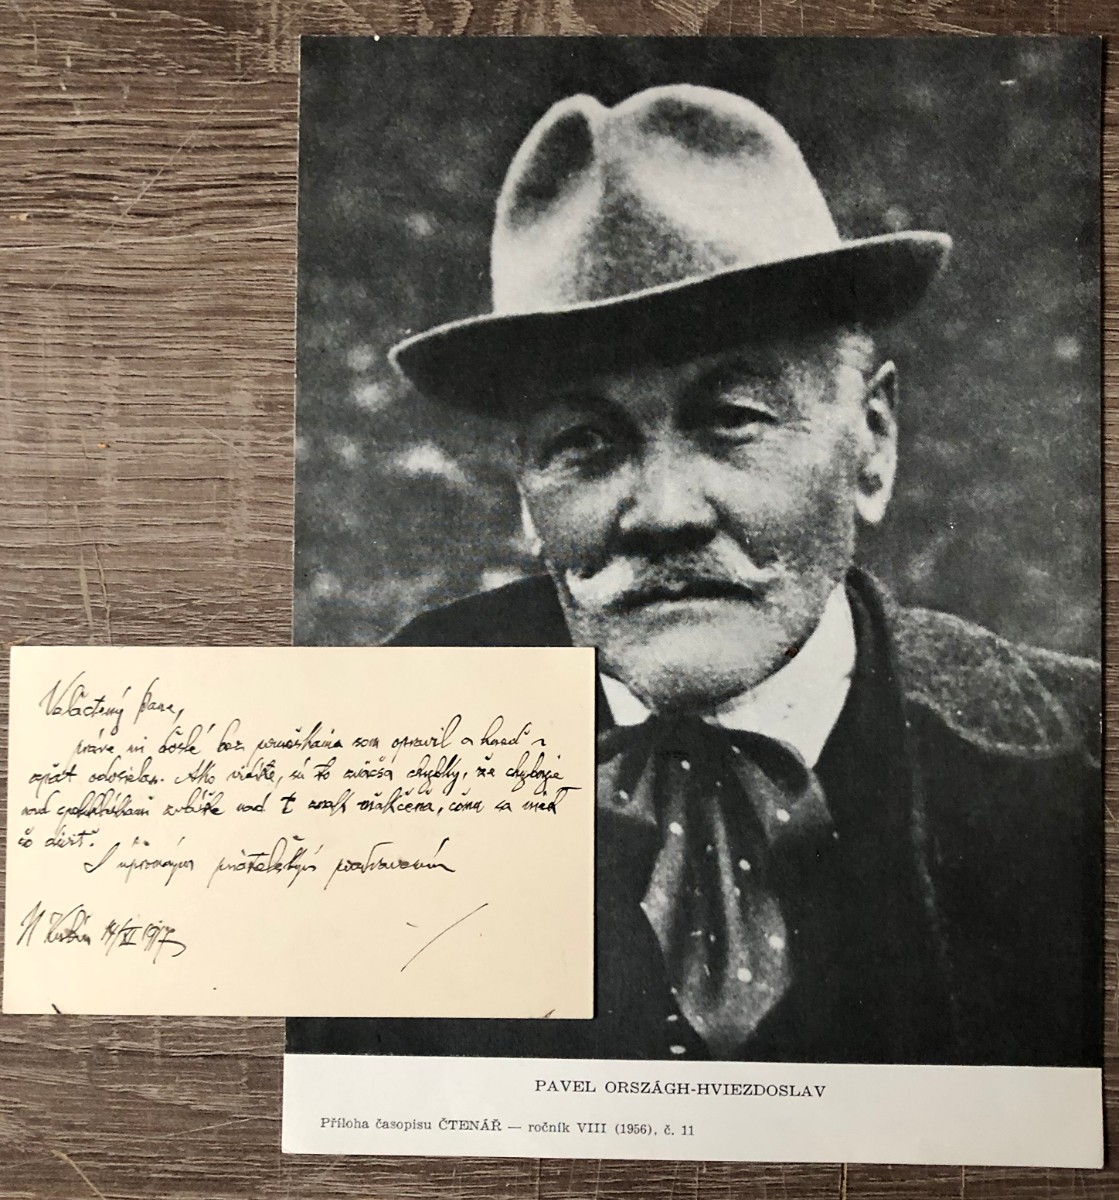 Veľactený pane,
práve mi došlé bez meškania som opravil a hneď
zpät odosielam. Ako vidíte, sú to zväčša chybky, že chybuje
nad spoluhláskami zvlášte nad t znak mäkčeňa, čomu sa niet
čo diviť.
S úprimným priateľským pozdravením
N Kubín 14/XI 1917
PAVEL ORSZÁGH-HVIEZDOSLAV
Příloha časopisu ČTENÁŘ — ročník VIII (1956), č. 11